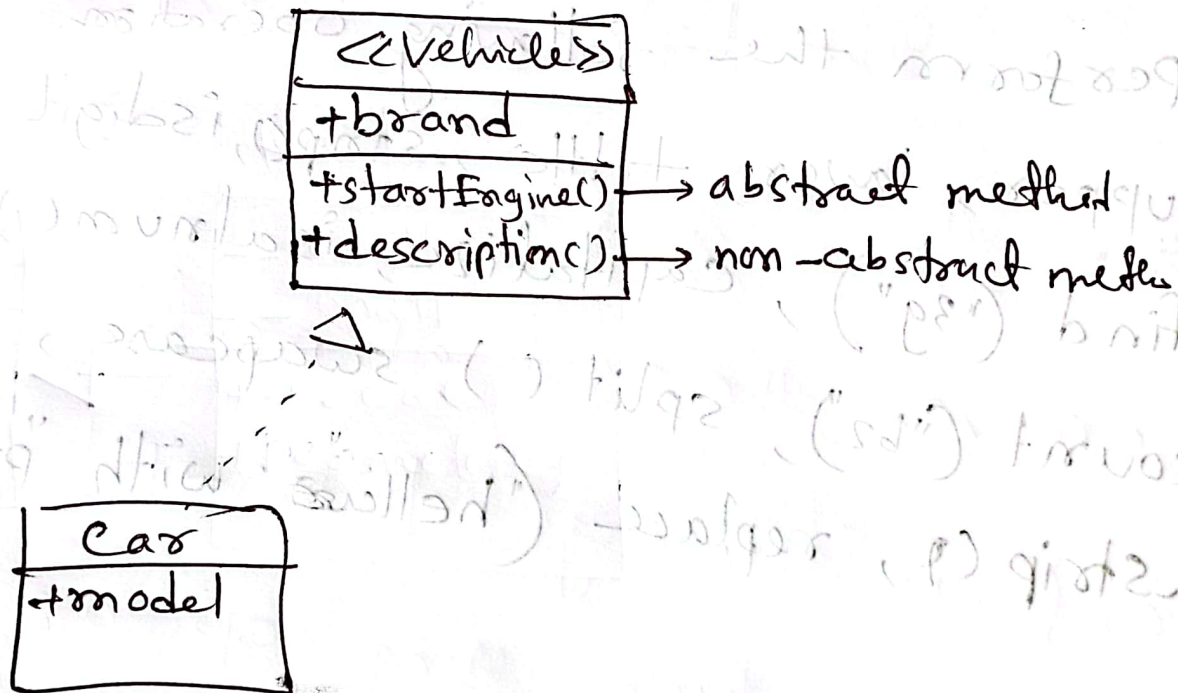 <<Vehicle>>
+brand
+startEngine() → abstract method
+description() → non-abstract metho
Car
+model